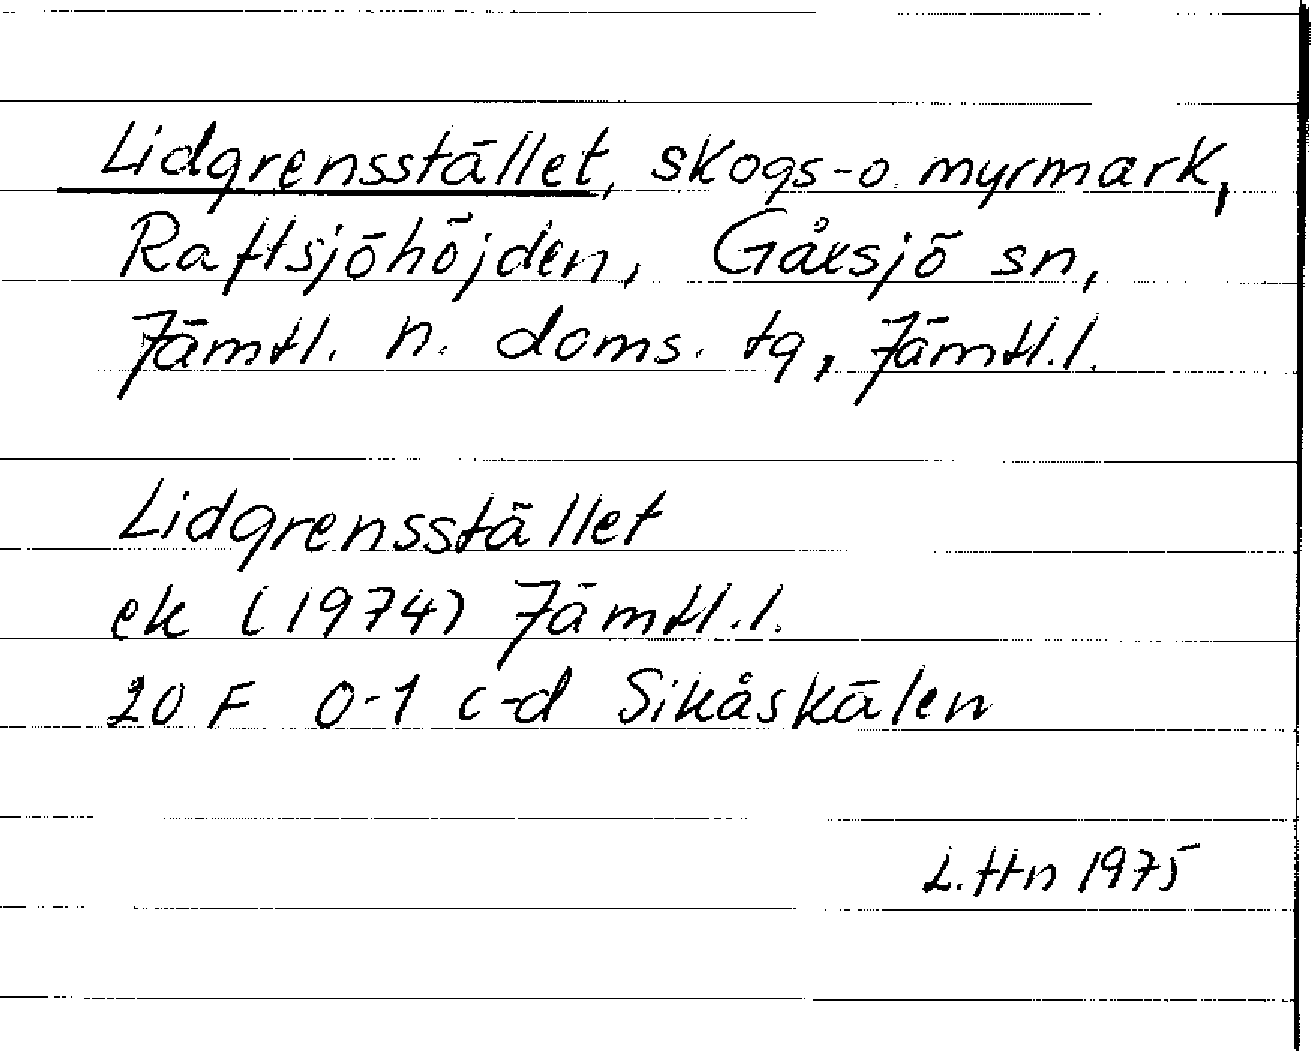 Lidgrensstället, skogs- o. myrmark,
Raftsjöhöjden, Gåxsjö sn,
Jämtl. n. doms. tg, Jämtl.l.
Lidgrensstället
ek (1974) Jämtl.l.
20 F 0-1 c-d Sikåskälen
L. Hn 1975